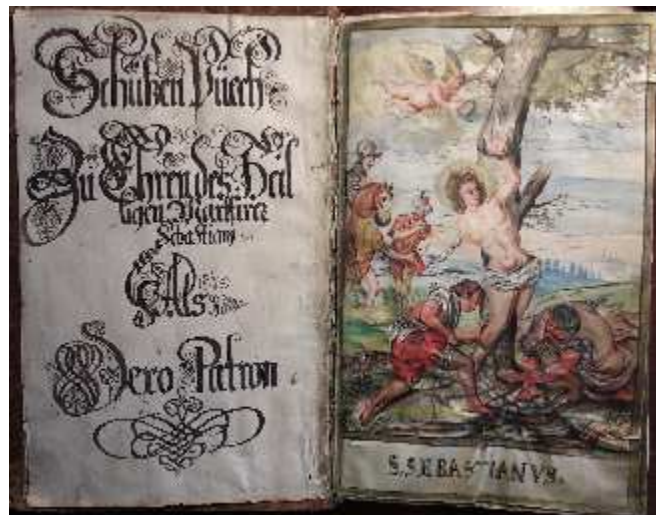 Schüßen Püech
Zu Ehren des Heil
ligen Martirer
Sebastiany
Als
Dero Patron
S. SEBASTIANVS.